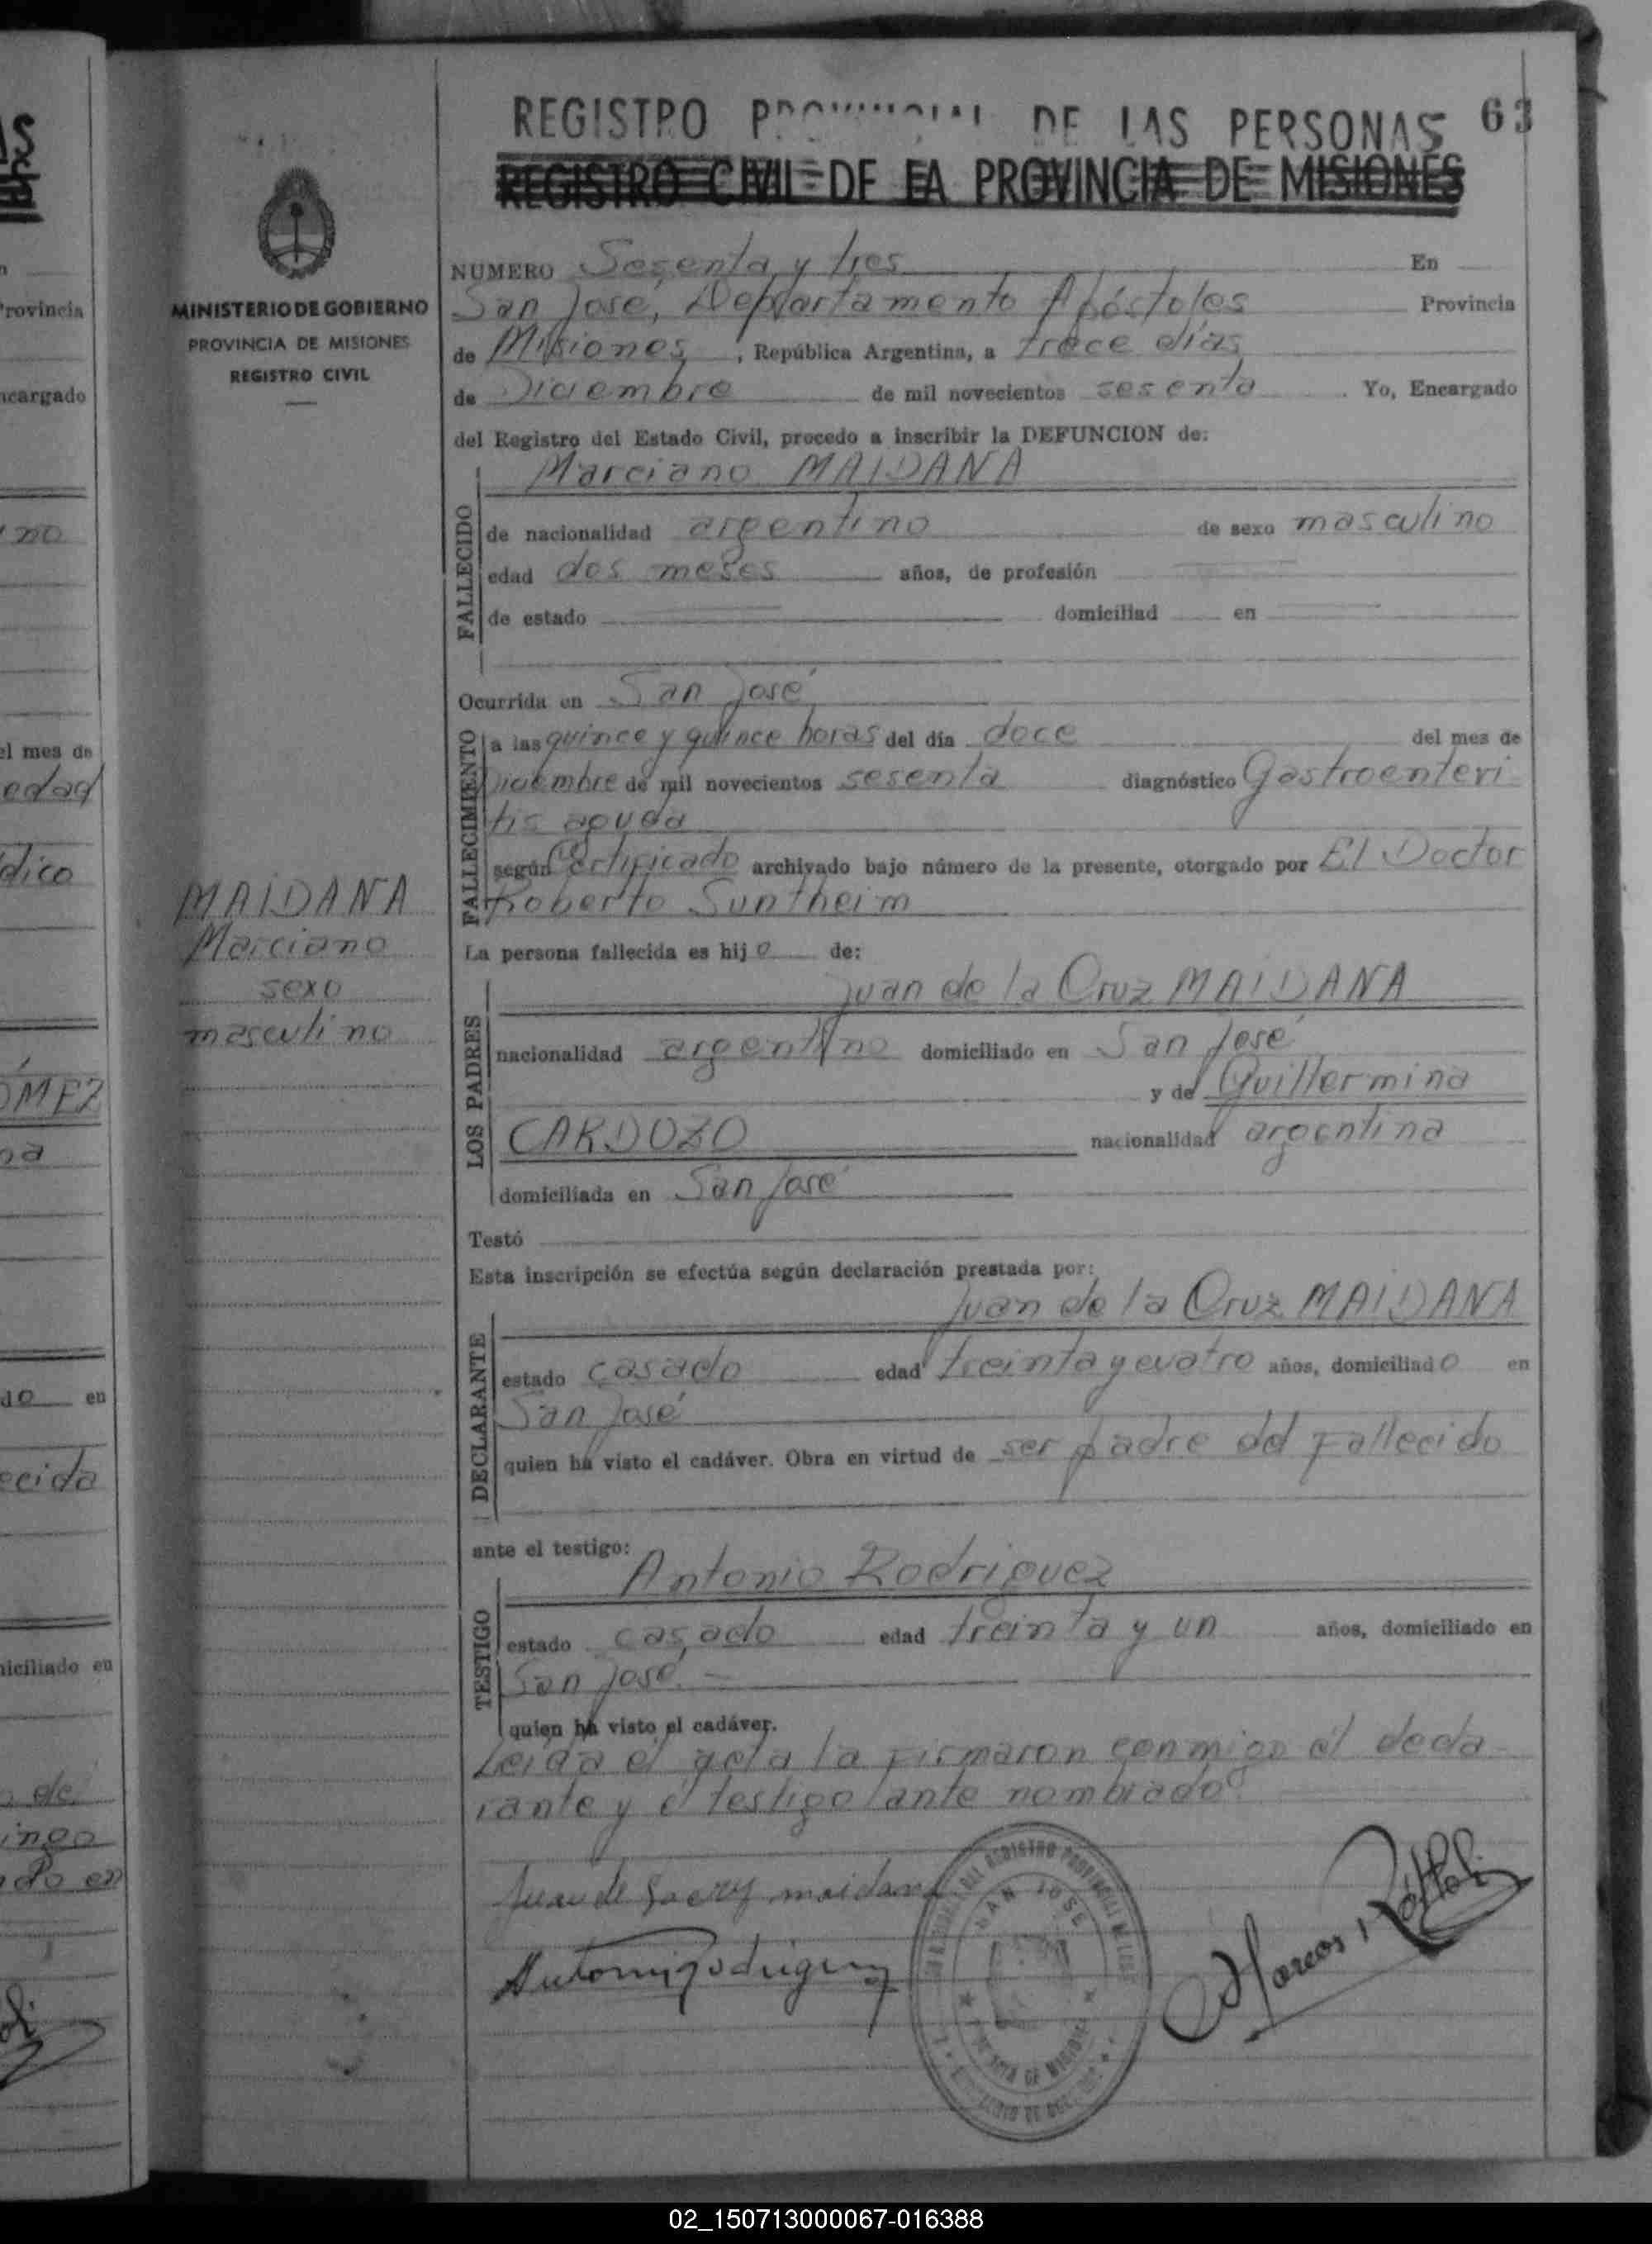 REGISTRO PROVINCIAL DE LAS PERSONAS 63
REGISTRO CIVIL DE LA PROVINCIA DE MISIONES
MINISTERIO DE GOBIERNO
PROVINCIA DE MISIONES
REGISTRO CIVIL
NUMERO Sesenta y tres En
San José, Departamento Apóstoles Provincia
de Misiones, República Argentina, a trece días
de Diciembre de mil novecientos sesenta. Yo, Encargado
del Registro del Estado Civil, procedo a inscribir la DEFUNCION de:
Marciano MAIDANA
FALLECIDO
de nacionalidad argentino de sexo masculino
edad dos meses años, de profesión
de estado domiciliad en
Ocurrida en San José
FALLECIMIENTO
a las quince y quince horas del día doce del mes de
Diciembre de mil novecientos sesenta diagnóstico Gastroenteri
tis aguda
según Certificado archivado bajo número de la presente, otorgado por El Doctor
Roberto Suntheim
MAIDANA
Marciano
sexo
masculino
La persona fallecida es hijo de:
LOS PADRES
Juan de la Cruz MAIDANA
nacionalidad argentino domiciliado en San José
y de Guillermina
CARDOZO nacionalidad argentina
domiciliada en San José
Testó
Esta inscripción se efectúa según declaración prestada por:
DECLARANTE
Juan de la Cruz MAIDANA
estado casado edad treinta y cuatro años, domiciliado en
San José
quien ha visto el cadáver. Obra en virtud de ser padre del fallecido
ante el testigo:
TESTIGO
Antonio Rodriguez
estado casado edad treinta y un años, domiciliado en
San José.-
quien ha visto el cadáver.
Leída el acta la firmaron conmigo el decla-
rante y el testigo ante nombrado
Juan de maidana
SAN JOSE
02_150713000067-016388